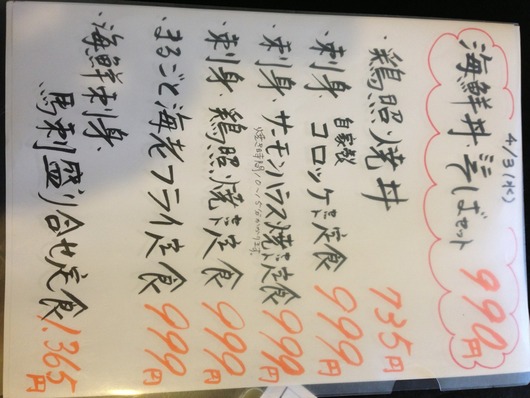 4/3(水)
海鮮丼・ミニそばセット 990円
・鶏照焼丼 735円
・刺身・自家製コロッケ定食 999円
・刺身・サーモンハラス焼定食 999円
・刺身・鶏照焼定食 999円
・まるごと海老フライ定食 999円
・海鮮刺身
馬刺盛り合せ定食 1,365円